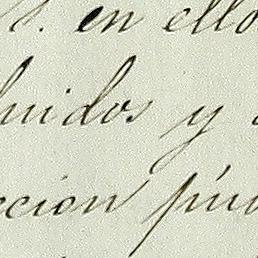 s. en ello
luidos y
ccion pú